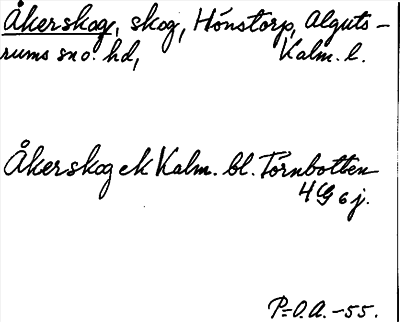 Åkerskog, skog, Hönstorp, Alguts-
rums sno. hd, Kalm. l.
Åkerskog ek Kalm. bl. Törnbotten
4 G 6 j.
P-O.A. -55.